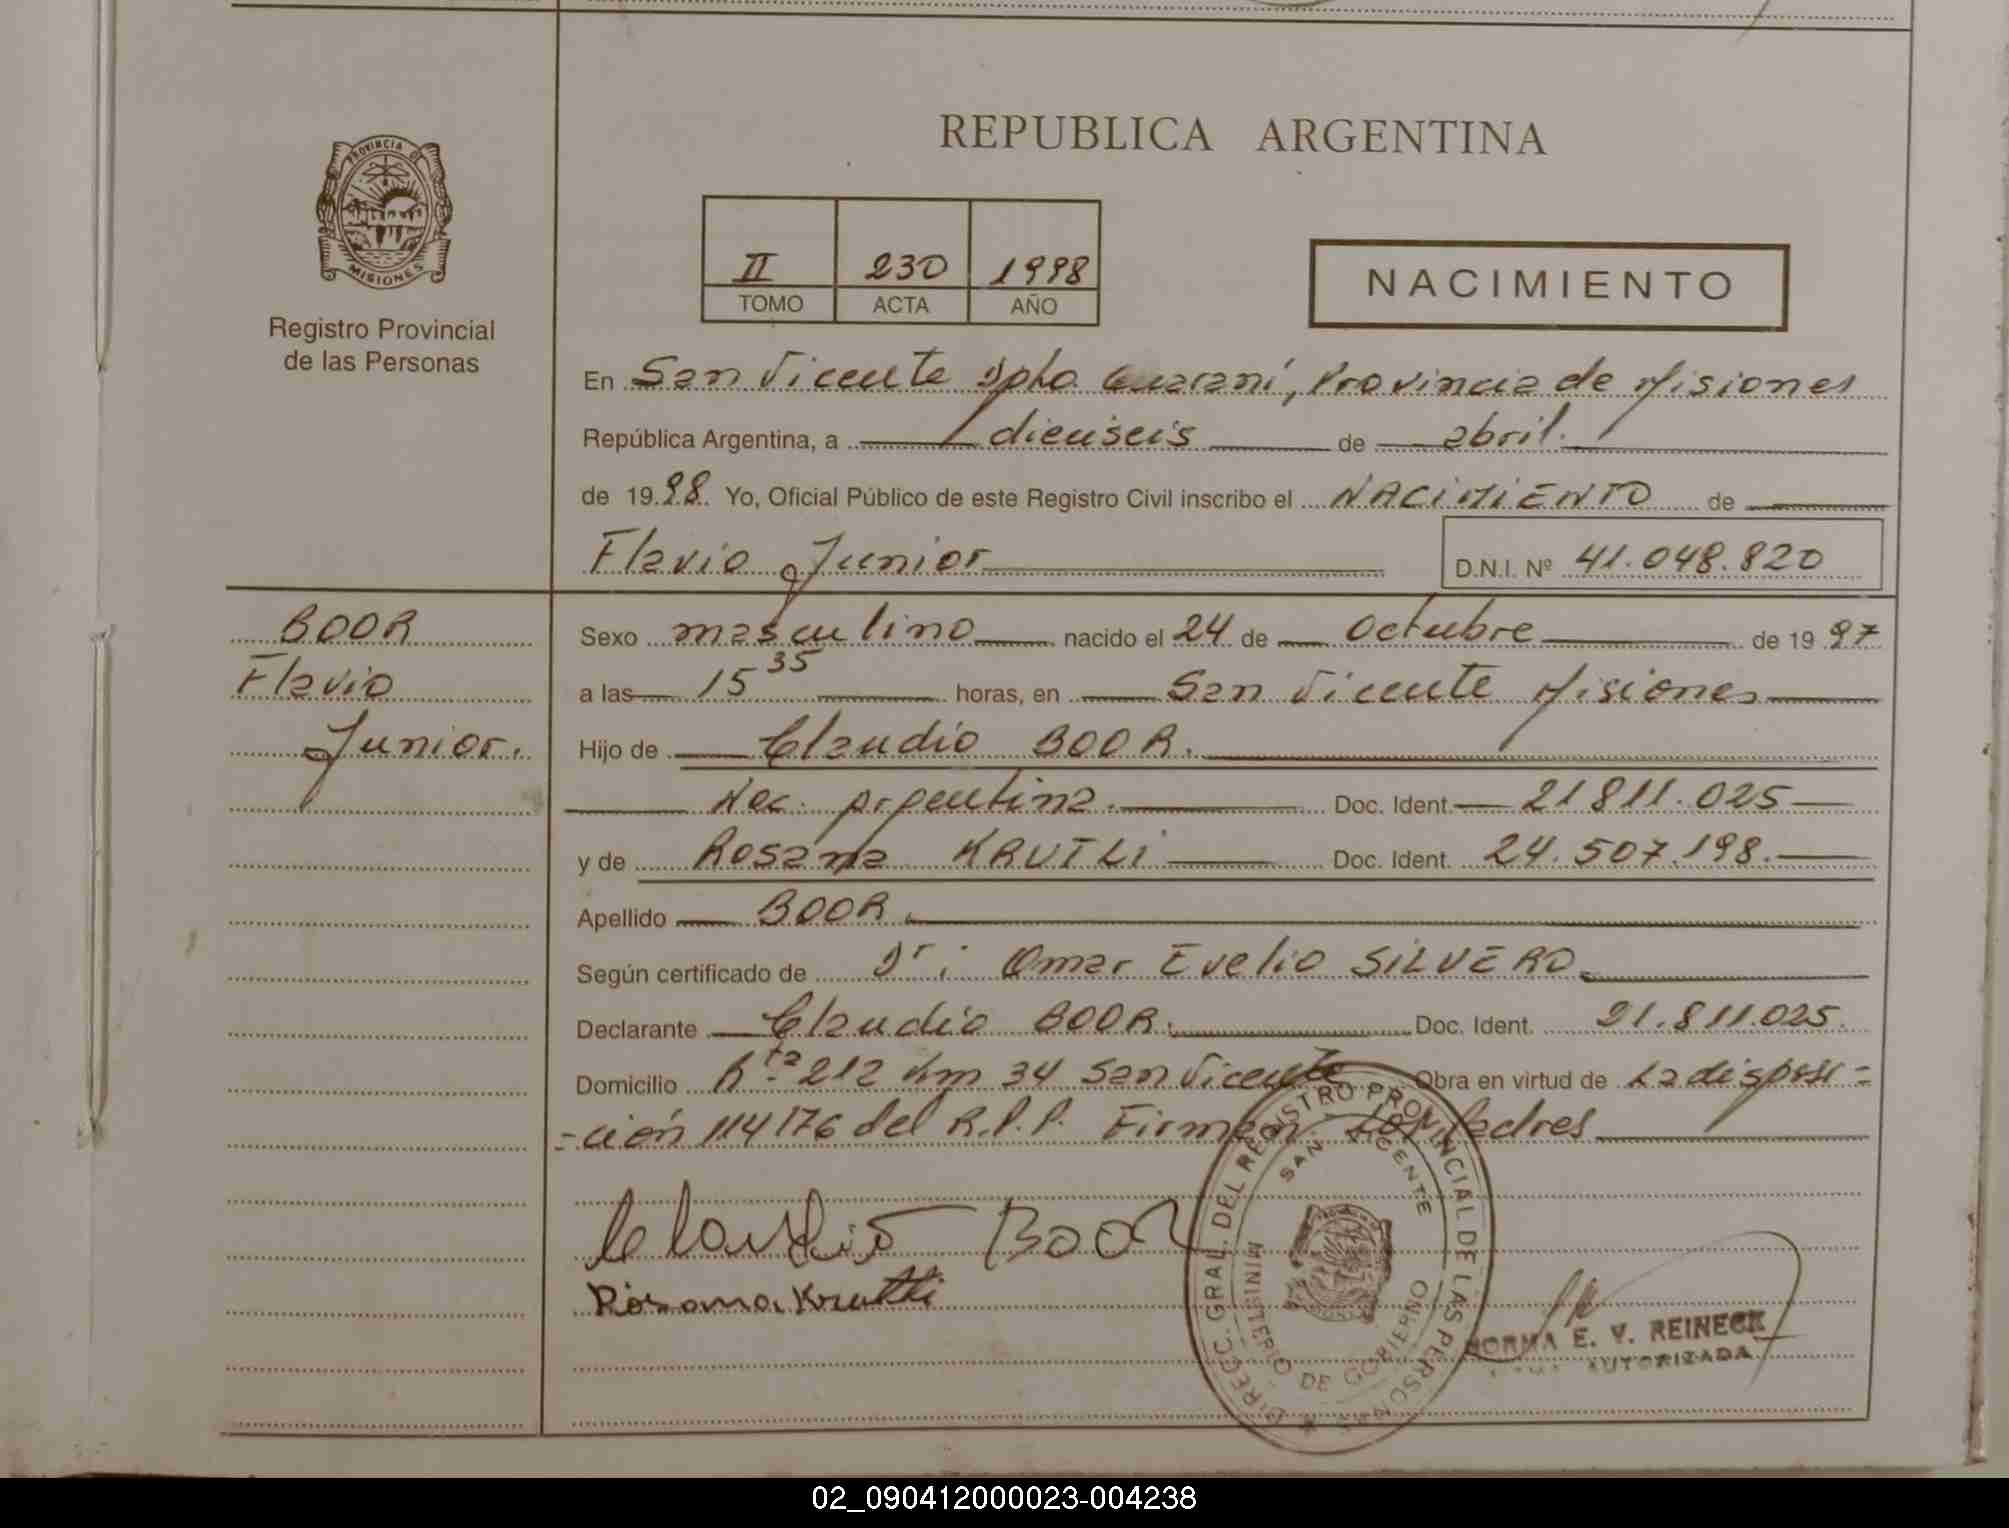 REPUBLICA ARGENTINA
PROVINCIA DE
MISIONES
Registro Provincial
de las Personas
II 230 1998
TOMO ACTA AÑO
NACIMIENTO
En San Vicente Dpto Guaraní, Provincia de Misiones
República Argentina, a dieciseis de abril.
de 1998. Yo, Oficial Público de este Registro Civil inscribo el NACIMIENTO de
Flavio Junior
D.N.I. Nº 41.048.820
BOOR
Flavio
Junior.
Sexo masculino nacido el 24 de Octubre de 1997
a las 15 35 horas, en San Vicente Misiones
Hijo de Claudio BOOR.
Nac. Argentina. Doc. Ident. 21811.025
y de Rosana KRUTLI Doc. Ident. 24.507.198.
Apellido BOOR.
Según certificado de Dr: Omar Evelio SILVERO
Declarante Claudio BOOR. Doc. Ident. 21.811.025.
Domicilio Rta 212 Km 34 San Vicente Obra en virtud de La disposi=
=ción 114176 del R.P.P. Firman Los Padres
Claudio Boor
Rosana Krutli
DIRECC. GRAL. DEL REGISTRO PROVINCIAL DE LAS PERSONAS
SAN VICENTE
MINISTERIO DE GOBIERNO
NORMA E. V. REINECK
AUTORIZADA
02_090412000023-004238